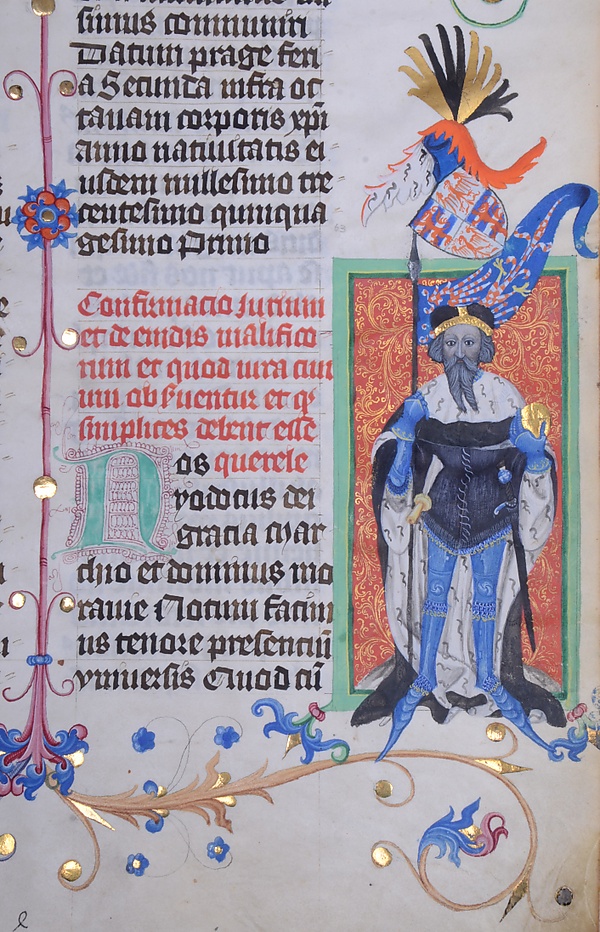 simus communiri
Datum prage feri
a Secunda infra oc
tauam corporis xpi
anno natiuitatis ei
usdem millesimo tre
centesimo quinqua
gesimo Primo
Confirmacio jurium
et de emdis malifico
rum et quod iura
um et
simplices debent esse
Nos querele
yodocus dei
gracia mar
chio et dominus mo
rauie Notum facim
us tenore presenciu
vniuersis Quod cu